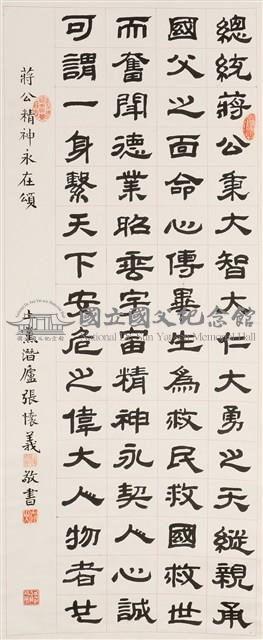 總統蔣公秉大智大仁大勇之天縱親承
國父之面命心傳畢生為救民救國救世
而奮鬥德業昭垂宇宙精神永契人心誠
可謂一身繫天下安危之偉大人物者也
蔣公精神永在頌
上黨潛廬張懷義敬書
國立國父紀念館
National Dr. Sun Yat-sen Memorial Hall